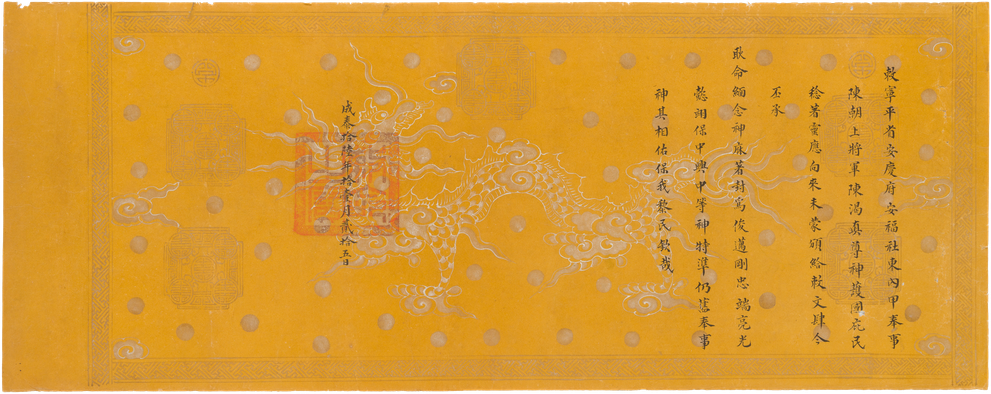 敕寧平省安慶府安福社東內甲奉事
陳朝上將軍陳渴真尊神護國庇民
稔著靈應向來未蒙頒給敕文肆今
丕承
耿命緬念神庥著封爲俊邁剛忠端亮光
懿翊保中興中等神特準仍舊奉事
神其相佑保我黎民欽哉
成泰拾陸年拾壹月貳拾五日